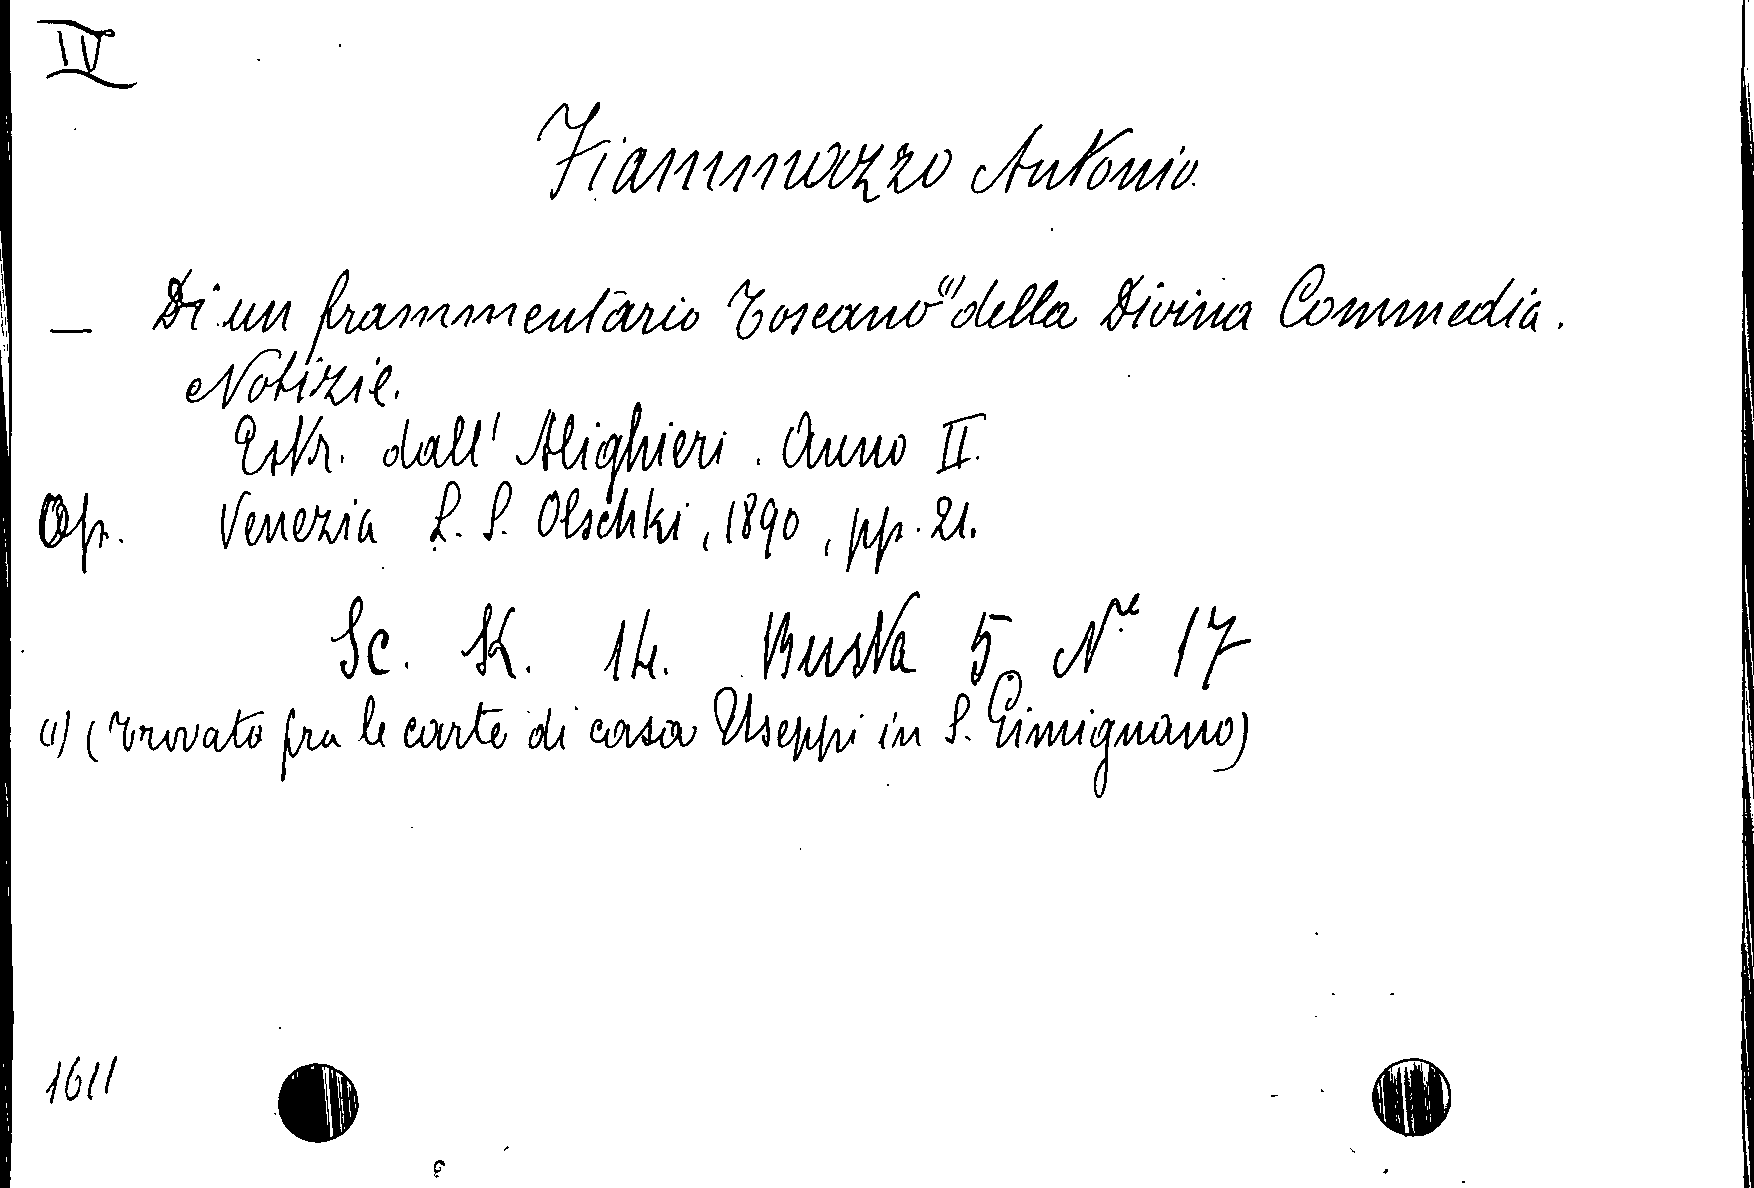 IV
Fiammazzo Antonio.
— Di un frammentario Toscano (1) della Divina Commedia.
Notizie.
Estr. dall' Alighieri. Anno II.
Op. Venezia L. S. Olschki, 1890, pp. 21.
Sc. K. 14. Busta 5. N.re 17
(1) (Trovato fra le carte di casa Useppi in S. Gimignano)
1611